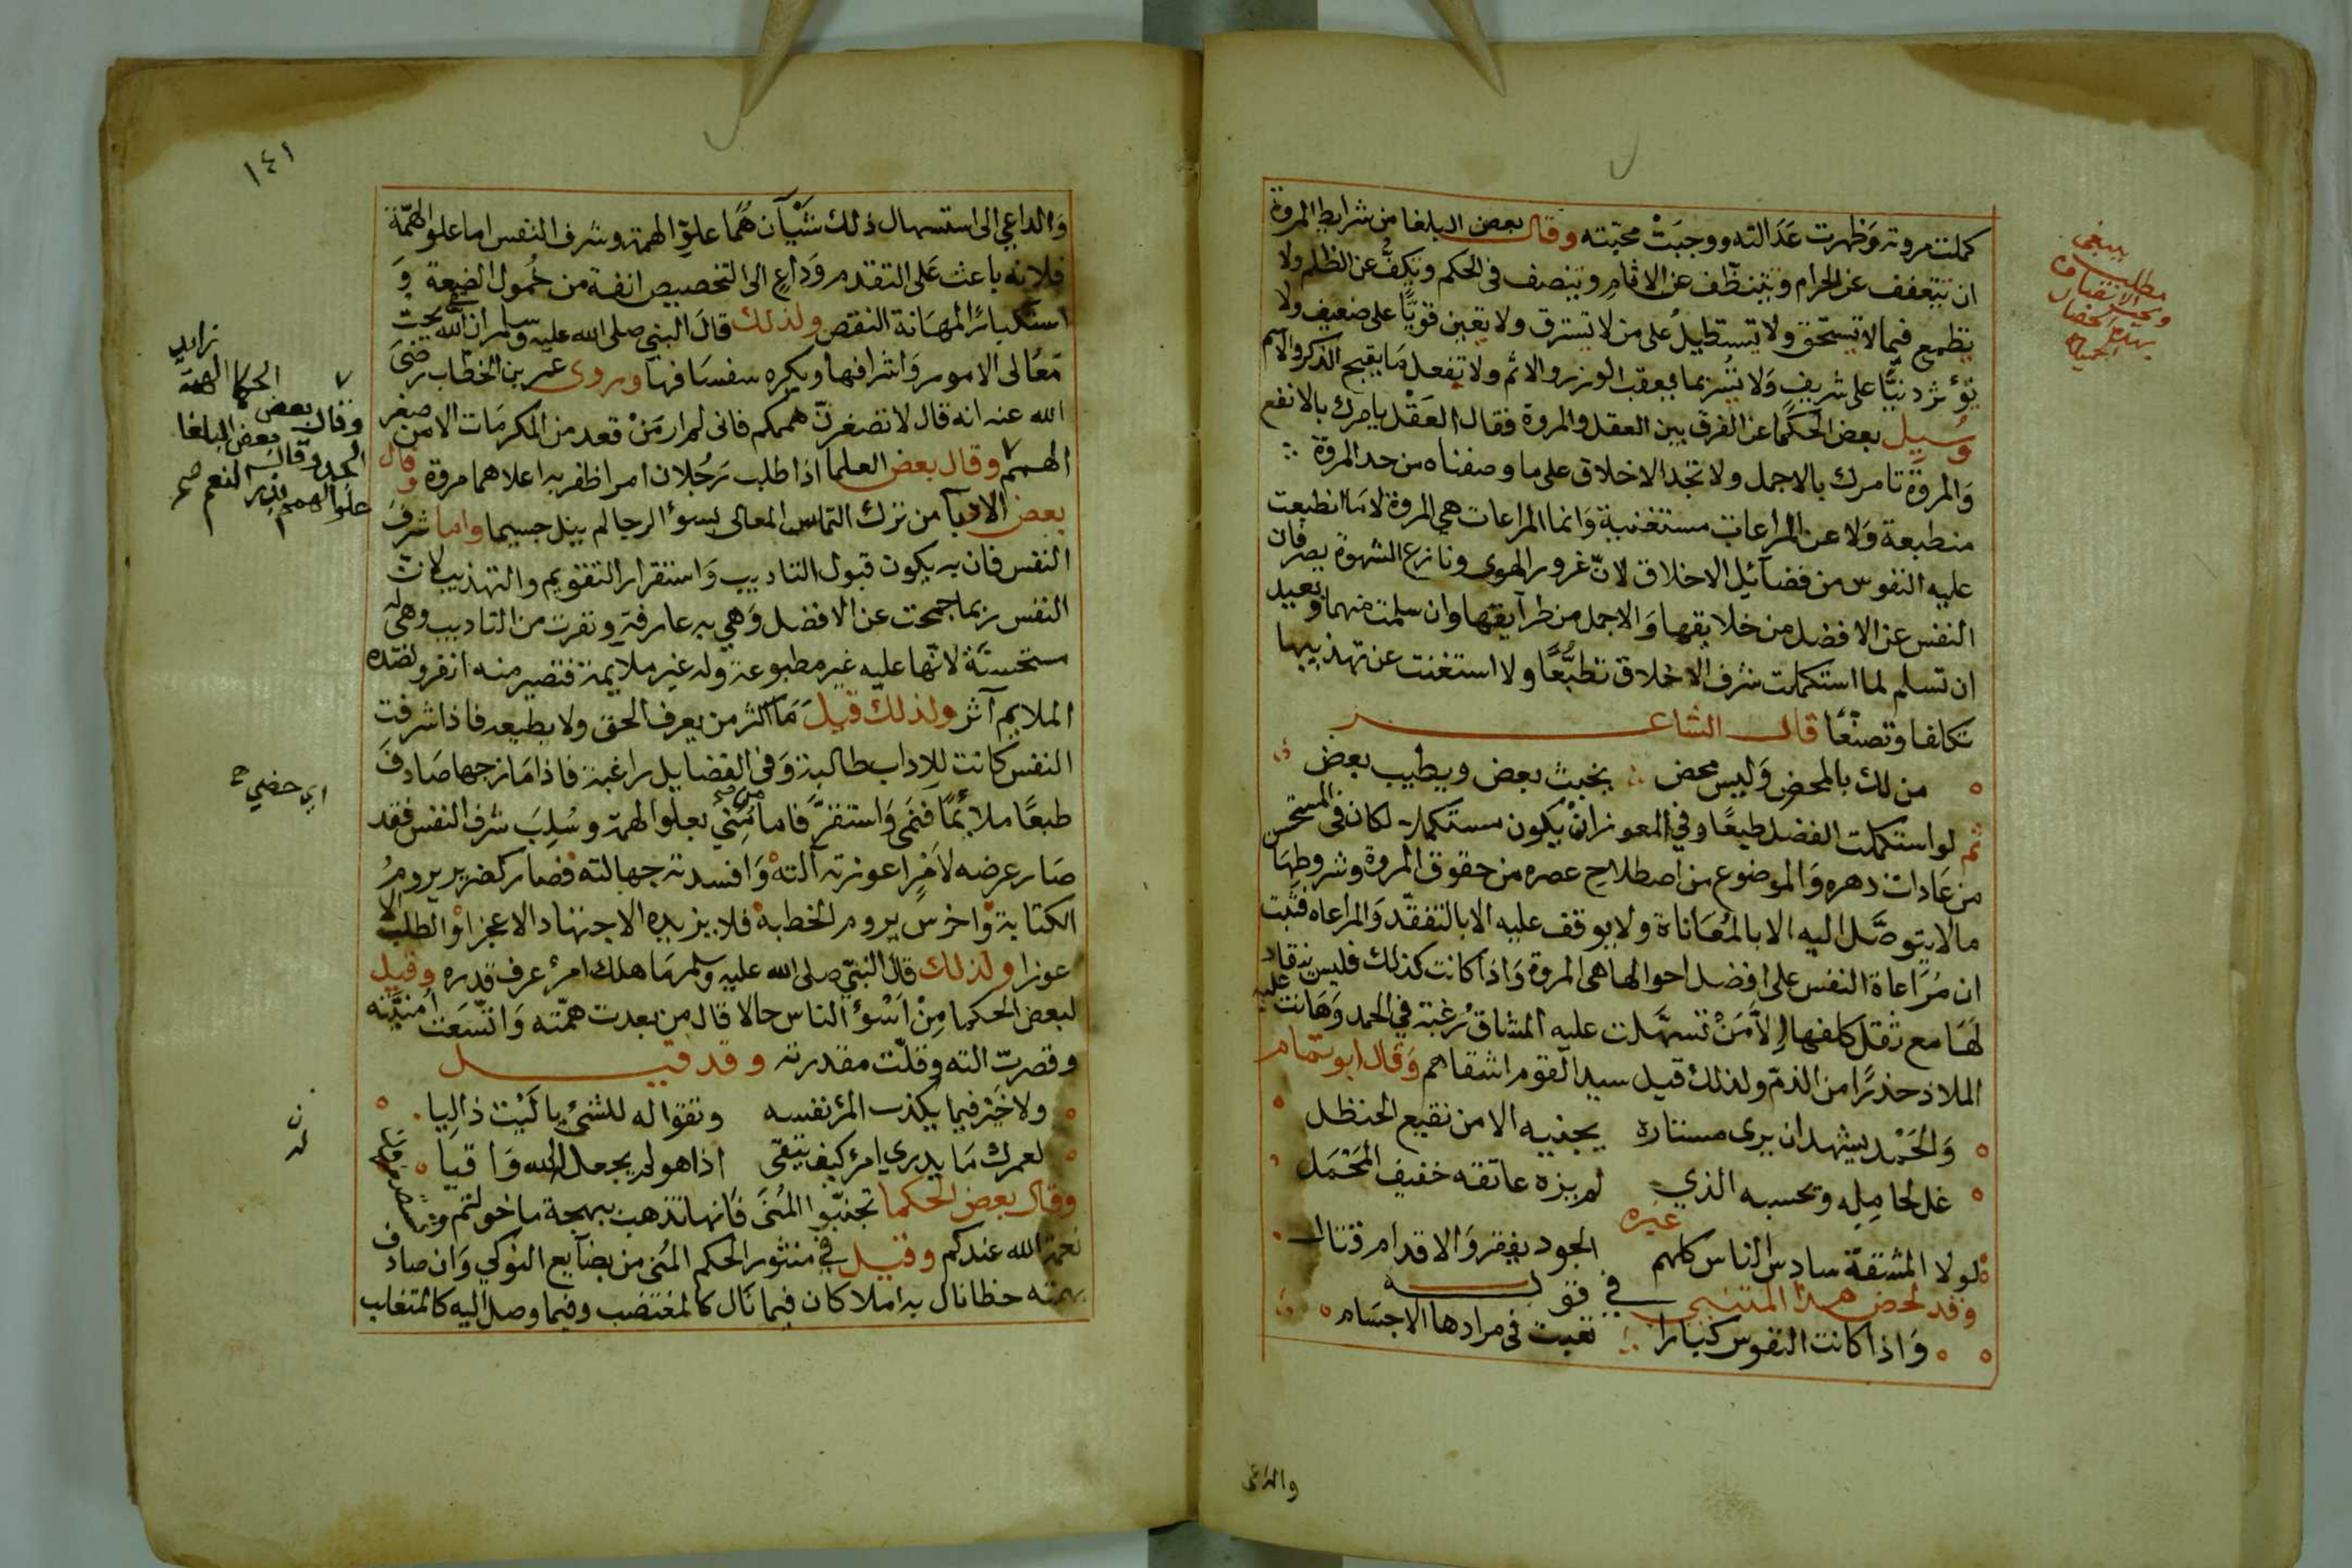 كملت مروته وَظهرت عَدَالته ووجبَتْ محبّته وقال بعض البلغا من شرايط المروة
ان تتعفف عن الحرام وتتنظّف عن الاثامِ وتنصف في الحكم وتكفّ عن الظلم ولا
تطمع فيما لا تستحق ولا تستطيلُ على من لا تسترق ولا تعين قويًّا على ضعيف ولا
تؤثر دنيًّا على شريفٍ وَلا تسُر بما يعقب الوزر والاثم ولا تفعل مَا يقبح الذكر والاسم
وسُيل بعض الحكمَا عن الفرق بين العقل والمروة فقال العَقْل يامرك بالانفع
وَالمروّة تامرك بالاجمل ولا تجد الاخلاق على ما وصفناه من حد المروّة
منطبعة وَلا عن المراعات مستغنية وَانما المراعات هي المروة لا مَا انطبعت
عليه النفوس من فضآئل الاخلاق لانّ غرور الهوى ونازع الشهوة يصرفان
النفس عن الافضل من خلايقها وَالاجمل من طرآيقها وان سلمت منهما وبعيد
ان تسلم لما استكملت شرف الاخلاق تطبُّعًا ولا استغنت عن تهذيبها
تكلفا وتصنّعًا قال الشاعر
من لك بالمحض وَليس محض يخبث بعض ويطيب بعض
ثم لو استكملت الفضل طبعًا وفي المعوز انْ يكون مستكملا لكان في المستحسن
من عَادات دهره وَالموضوع من اصطلاحِ عصره من حقوق المروة وشروطهَا
مالا يتوصَّل اليه الا بالمُعَاناة ولا يوقف عليه الا بالتفقّد وَالمراعاه فثبت
ان مُرَاعاة النفس على افضل احوالها هي المروة وَاذا كانت كذلك فليس ينقاد
لهَا مع ثقل كلفها اِلاَّ مَنْ تسهَّلت عليه المشاق رُغبة في الحمد وَهَانت عليه
الملاذ حذرًا من الذمّ ولذلك قيل سيد القوم اشقاهم وَقال ابو تمام
وَالحَمْد يشهد ان يرى مستاره يجنيه الا من نقيع الحنظل
غل لحامِلِه وتحسبه الذي لم يزه عاتقه خفيف المَحْمَل
غيره
لولا المشقّة ساد الناس كلهم الجود يفقر وَالاقدام قتال
وقد لحض هذا المتنبي في قوله
وَاذا كانت النفوس كبارا تعبت في مرادها الاجسَام
والداعي
ينبغي
مطلب
١٤١
وَالداعي الى استسهال ذلك شَيْآن هُما علوّ الهمة وشرف النفس اما علو الهمّة
فلانه باعث عَلى التقدم وَداعٍ الى التخصيص انفة من خُمول الضعة وَ
استكبارًا لمهَانة النقص ولذلك قالَ النبي صلى الله عليه وسلم ان الله يحبّ
مَعَالى الامور وَاشرافها ويكره سفسَافها وروى عن عمر بن الخطاب رضي
الله عنه انه قال لا تصغرنّ هممكم فانى لم ار مَنْ قعد من المكرمَات الا من صغر
الهمم وقال بعض العلما اذا طلب رَجُلان امرا ظفر به اعلاهما مروة وقال
بعض الادبآ من ترك التماس المعالى بسوء الرجا لم ينل جسيما واما شرفَ
النفس فان به يكون قبول التاديب وَاستقرار التقويم والتهذيب لانّ
النفس ربما جمحت عن الافضل وَهي به عارفة ونفرت من التاديب وهى له
مستحسنَة لانّها عليه غير مطبوعة وله غير ملايمة فتصير منه انفر ولضدّه
الملايم آثر ولذلك قيلَ مَا اكثر من يعرف الحق ولا يطيعه فاذا شرفت
النفس كانت للاداب طالبة وَفي الفضايل راغبة فاذا مَازجها صَادفَ
طبعًا ملائمًا فنمَى وَاستقرَّ فاما من مُنِيَ بعلو الهمة وسُلِبَ شرف النفس فقد
صَار عرضه لاَمْرٍ اعوزته آلته وَافسدته جهالته فصار كضرير يرومُ
الكتابة وَاخرسٍ يروم الخطبة فلا يزيده الاجتهاد الا عجزا وَالطلب الا
عوزا ولذلك قال النبيّ صلى الله عليه وسلم مَا هلك امرؤ عرف قدره وقيل
لبعض الحكما مِنْ اسْوَء الناس حالا قال من بعدت همّته وَاتّسَعت اُمنيّته
وقصرت الته وقلّت مقدرته وقد قيل
ولا خَيْر فيما يكذب المرء نفسه وتقوالِه للشئ يا لَيْت ذالِيا
لعمرك مَا يدري امرؤ كيف يتقى اذا هو لم يجعل له الله وَاقيا
وقال بعض الحكما تجنبّوا المُنَى فَانها تذهب ببهجة ما خولتم
نعمة الله عندكم وقيل في منثور الحكم المُنى من بضآيع النوكي وَان صادف
بهمته حظا نال به املا كان فيما نَال كالمغتصب وفيما وصل اليه كالمتغلب
وقال بعض الحكما الهمة
بعض البلغا
علو الهمم بذر النعم صح